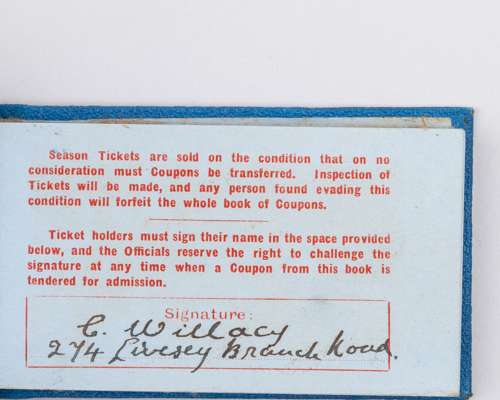 Season Tickets are sold on the condition that on no
consideration must Coupons be transferred. Inspection of
Tickets will be made, and any person found evading this
condition will forfeit the whole book of Coupons.
Ticket holders must sign their name in the space provided
below, and the Officials reserve the right to challenge the
signature at any time when a Coupon from this book is
tendered for admission.
Signature:
C. Willacy
274 Livesey Branch Road.